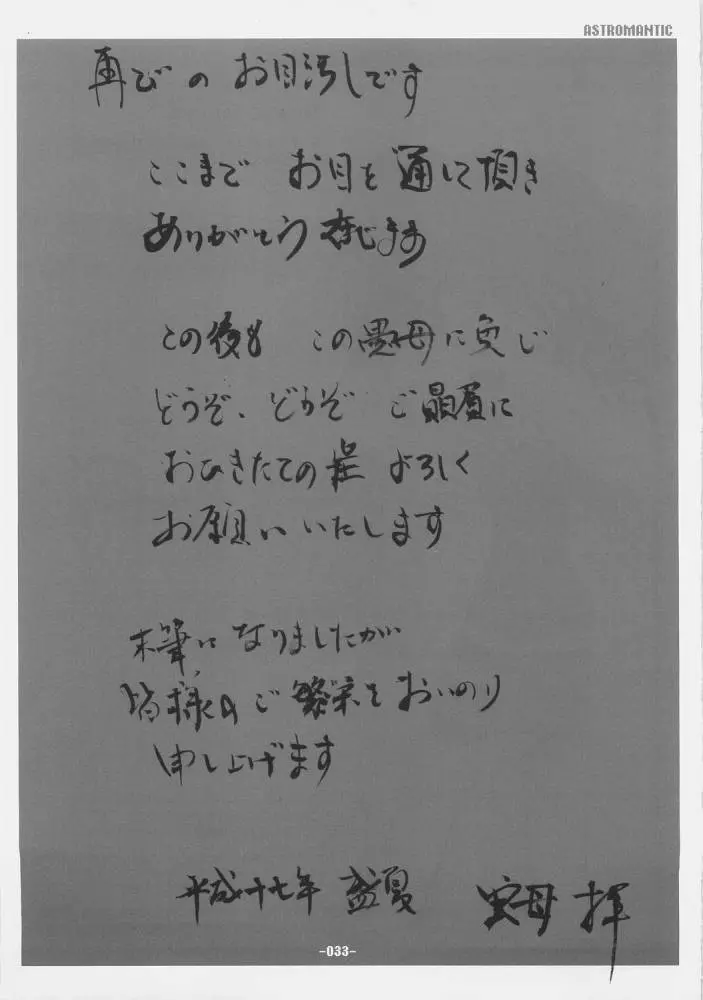 ASTROMANTIC
再びのお目汚しです
ここまで お目を通して頂き
ありがとう存じます
この後も この愚母に免じ
どうぞ、どうぞ ご贔屓に
おひきたての程 よろしく
お願いいたします
末筆になりましたが
皆様のご繁栄をおいのり
申し上げます
平成十七年 盛夏
実母 拝
-033-